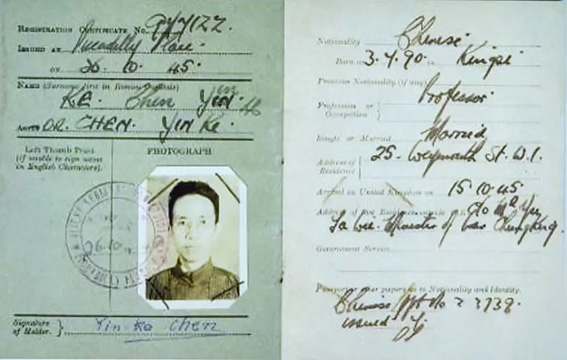 REGISTRATION CERTIFICATE No.
ISSUED AT Piccadilly Place
ON 26. 10. 45.
NAME (Surname first in Roman Capitals)
KE. Shen YIN
ALIAS DR. CHEN. YIN Ke.
Left Thumb Print
(if unable to sign name
in English Characters).
PHOTOGRAPH
Signature
of Holder.
Yin-Ke Chen
Nationality Chinese
Born on 3.4.90. in
Previous Nationality (if any)
Profession or
Occupation
Professor
Single or Married Married
Address of
Residence
25. Weymouth St. W.1.
Arrived in United Kingdom on 15.10.45
Address of last Residence outside U.K.
Minister of War Chungking.
Government Service
Passport or other papers as to Nationality and Identity.
Chinese
issued